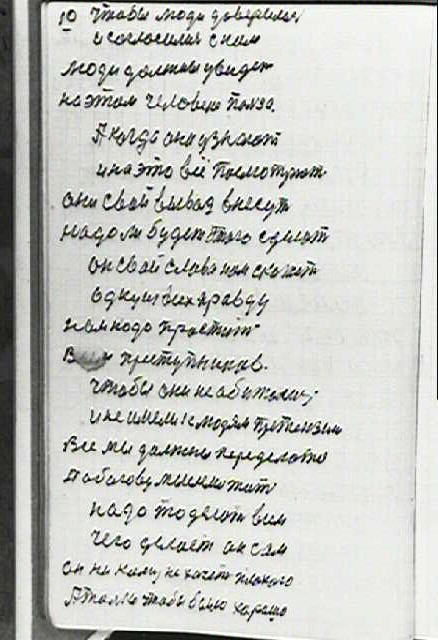 10 Чтобы люди доверились
и согласились с ним
люди должны увидет
на этом человеку полза.
А когда они узнают
и на это всё посмотрют
они свой вывод внесут
надо ли будет этого сделат
он свой слова нам скажет
одну из всех правду
нам надо простит
преступников.
Чтобы они не обижались
и не имели к людям претензии
Все мы должны переделат
надо то делат вим
чего делает он сам
он никому не хочет плохого
А толко чтобы было хорошо